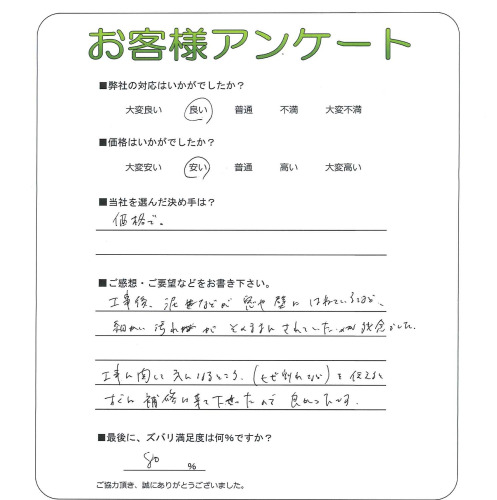 お客様アンケート
■弊社の対応はいかがでしたか？
大変良い 良い 普通 不満 大変不満
■価格はいかがでしたか？
大変安い 安い 普通 高い 大変高い
■当社を選んだ決め手は？
価格で。
■ご感想・ご要望などをお書き下さい。
工事後、泥などが窓や壁にはねているなど、
細かい汚れがそのままにされていたのが残念でした。
工事に関して気になるところ、(ひび割れなど)を伝えると
すぐに補修に来て下さったので良かったです。
■最後に、ズバリ満足度は何％ですか？
80 ％
ご協力頂き、誠にありがとうございました。